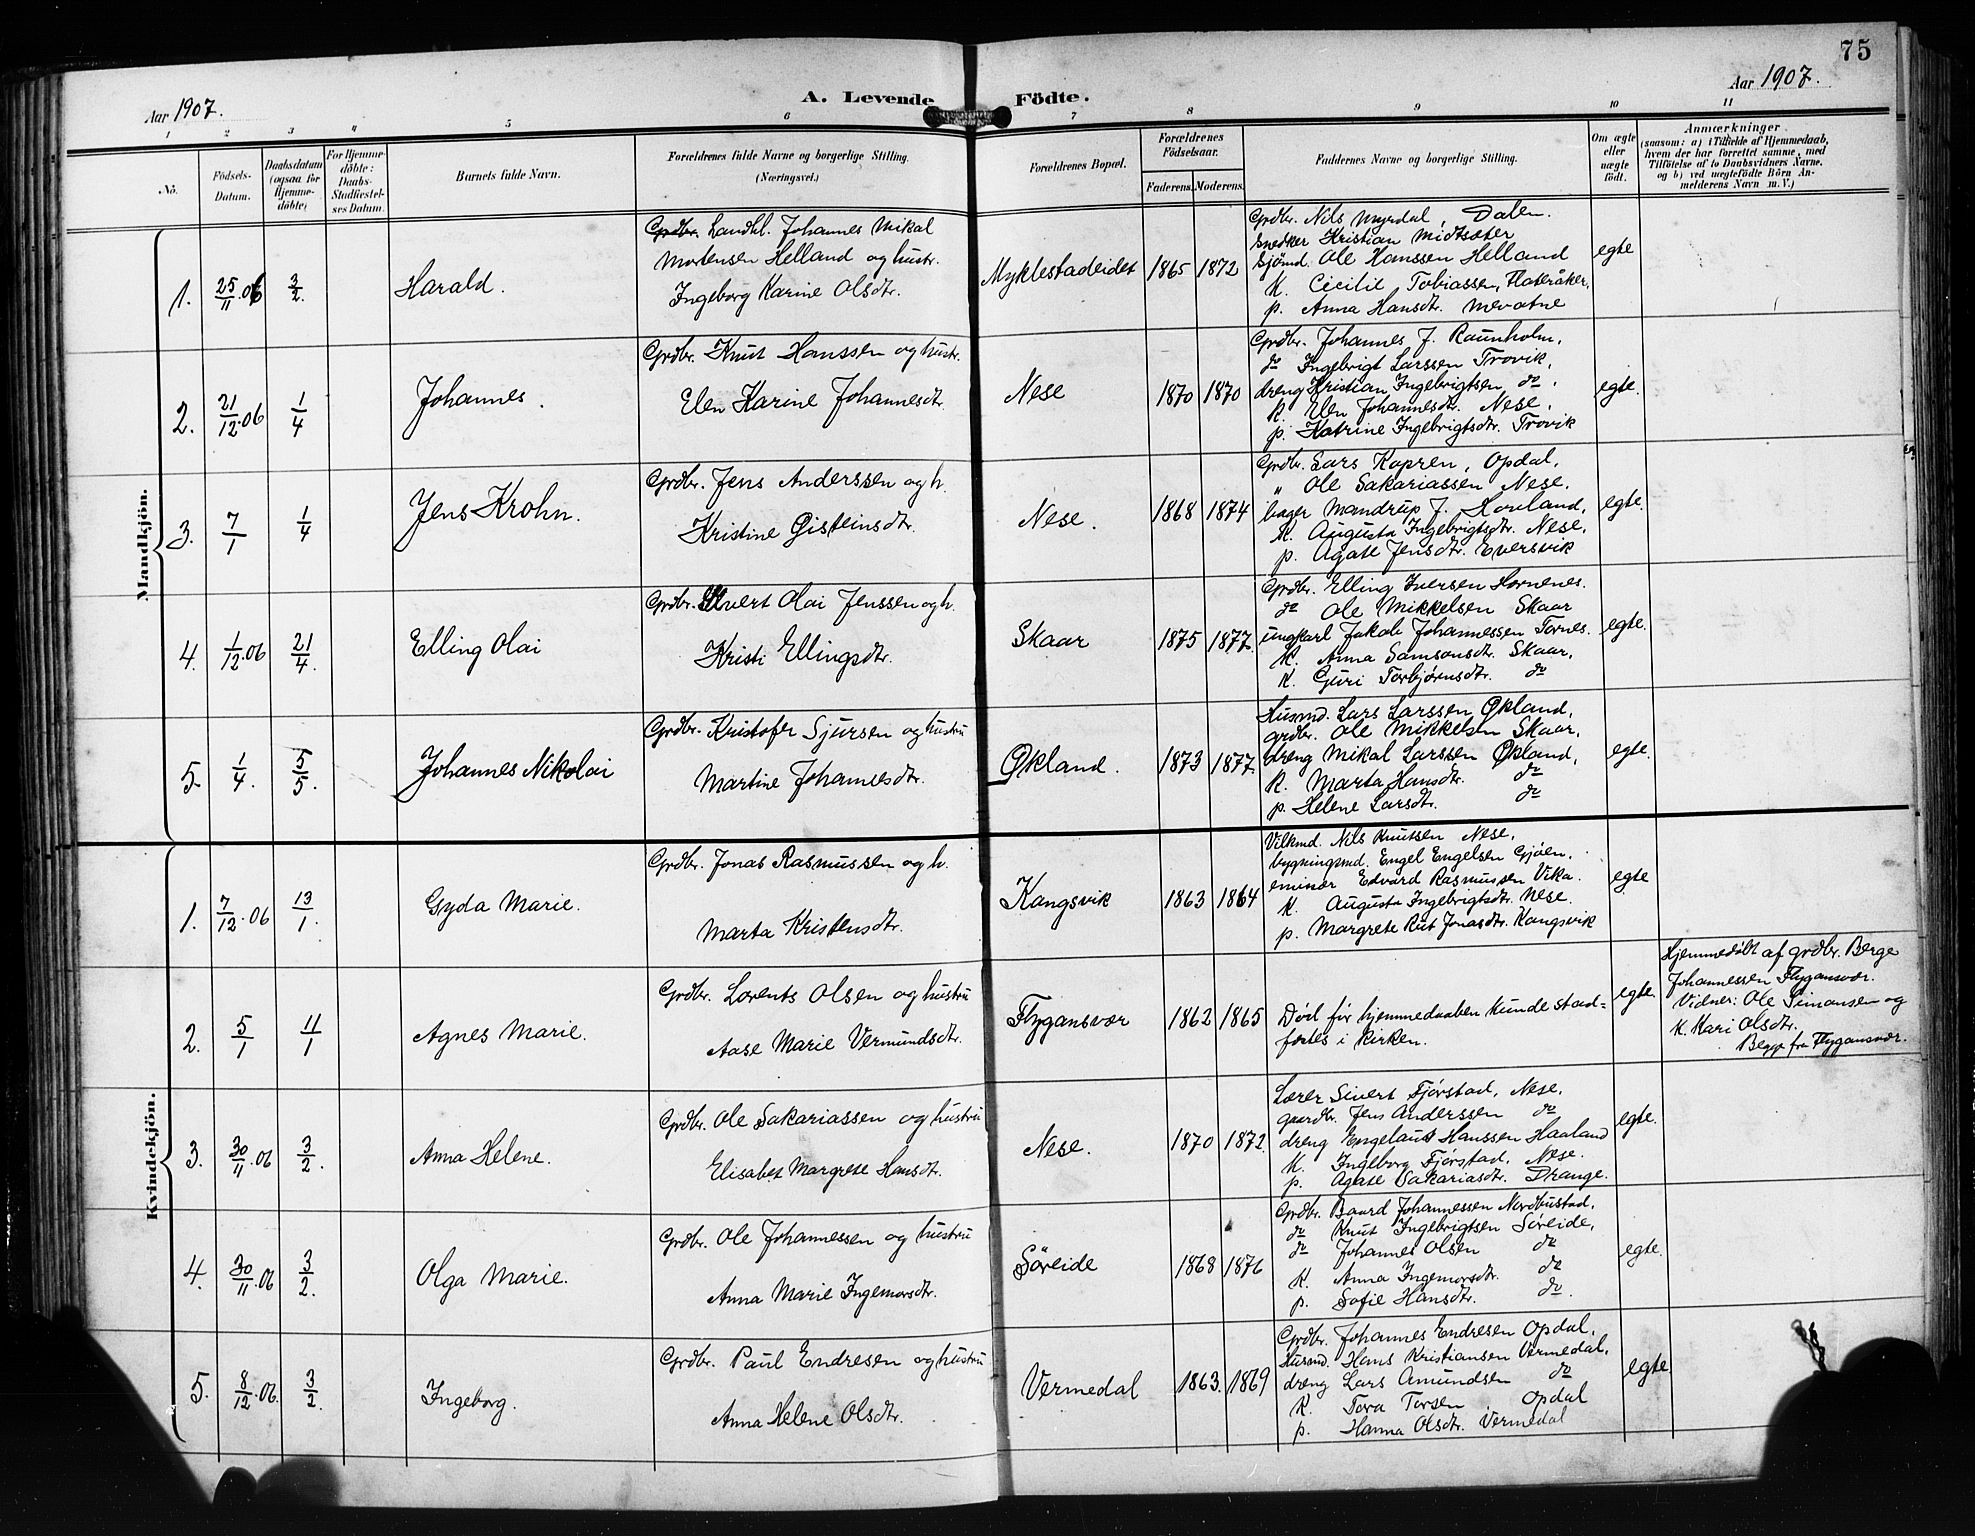 75
Aar 1907.
A. Levende Födte.
Aar 1907.
1 2 3 4 5 6 7 8 9 10 11
No.
Födsels-Datum.
Daabsdatum (ogsaa for Hjemme-döbte)
For Hjemme-döbte: Daabs-Stadfæstel-ses Datum.
Barnets fulde Navn.
Forældrenes fulde Navne og borgerlige Stilling.
(Næringsvei.)
Forældrenes Bopæl.
Forældrenes Födselsaar.
Faderens. Moderens.
Faddernes Navne og borgerlige Stilling.
Om ægte eller uægte født.
Anmærkninger
(saasom: a) i Tilfælde af Hjemmedaab,
hvem der har forrettet samme, med
Tilföielse af to Daabsvidners Navne.
og b) ved uægtefödte Börn An-
melderens Navn m. V.)
Mandkjön.
1. 25/11 06 3/2. Harald.
Grdbr. Landhl. Johannes Mikal
Mortensen Helland og hustr.
Ingeborg Karine Olsdtr.
Myklestadeidet 1865 1872
Grdbr. Nils Myrdal, Dalen.
Snedker Kristian Midtsæter
Sjömd. Ole Hanssen Helland
K. Cecilie Tobiassen, Flateråker,
p. Anna Hansdtr. Mevatne
egte
2. 21/12 06 1/4 Johannes.
Grdbr. Knut Hanssen og hustr.
Elen Karine Johannesdtr.
Nese 1870 1870
Grdbr. Johannes J. Raunholm,
do Ingebrigt Larssen Trovik,
dreng Kristian Ingebrigtsen do.
K. Elen Johannesdtr. Nese,
p. Katrine Ingebrigtsdtr. Trovik
egte.
3. 7/1 1/4 Jens Krohn.
Grdbr. Jens Anderssen og h.
Kristine Gisteinsdtr.
Nese. 1868 1874
Grdbr. Lars Kapren, Opdal,
" Ole Sakariassen Nese.
bager Mandrup J.
K. Augusta Ingebrigtsdtr. Nese,
p. Agate Jensdtr. Eversvik
egte.
4. 1/12 06 21/4. Elling Olai
Grdbr. Sivert Olai Jenssen og h.
Kristi Ellingsdtr.
Skaar 1875 1877.
Grdbr. Elling Iversen Hornenes.
do Ole Mikkelsen Skaar
ungkarl Jakob Johannessen Tornes.
K. Anna Samsonsdtr. Skaar,
K. Guri Torbjørensdtr. do
egte.
5. 1/4. 5/5. Johannes Nikolai
Grdbr. Kristofer Sjursen og hustru
Martine Johannesdtr.
Økland. 1873 1877.
Husmd. Lars Larssen Økland,
grdbr. Ole Mikkelsen Skaar,
dreng Mikal Larssen Økland,
K. Marta Hansdtr. do
p. Helene Larsdtr. do
egte.
Kvindekjön.
1. 7/12 06 13/1. Gyda Marie.
Grdbr. Jonas Rasmussen og h.
Marta Kristensdtr.
Kangsvik 1863 1864
Vilkmd. Nils Knutsen Nese,
bygningsmd. Engel Engelsen Gjøen.
emissær Edvard Rasmussen Vika.
K. Augusta Ingebrigtsdtr. Nese.
p. Margrete Rut Jonasdtr. Kangsvik
egte
2. 5/1 11/1 Agnes Marie.
Grdbr. Lorents Olsen og hustru
Aase Marie Vermundsdtr.
Flygansvær 1862 1865
Död för hjemmedaaben kunde stad-
fæstes i kirken.
egte.
Hjemmedöbt af grdbr. Berge
Johannessen Flygansvær.
Vidner: Ole Simonsen og
K. Kari Olsdtr.
Begge fra Flygansvær.
3. 30/11 06 3/2. Anna Helene.
Grdbr. Ole Sakariassen og hustru
Elisabet Margrete Hansdtr.
Nese. 1870 1872.
Lærer Sivert Fjörstad, Nese.
gaardbr. Jens Anderssen do
dreng Engelaut Hanssen Haaland
K. Ingeborg Fjörstad, Nese.
p. Agate Sakariasdtr. Drange.
egte.
4. 30/11 06 3/2. Olga Marie.
Grdbr. Ole Johannessen og hustru
Anna Marie Ingemorsdtr.
Söreide 1868 1876
Grdbr. Baard Johannessen Nordhustad,
do Knut Ingebrigtsen Söreide,
do Johannes Olsen do
K. Anna Ingemorsdtr. do
p. Sofie Hansdtr. do.
egte.
5. 8/12 06. 3/2. Ingeborg.
Grdbr. Paul Endresen og hustru
Anna Helene Olsdtr.
Vermedal 1863. 1869
Grdbr. Johannes Endresen Opdal,
Husmd. Hans Kristiansen Vermedal,
dreng Lars Amundsen do
K. Tora Torsen Opdal
p. Hanna Olsdtr. Vermedal
egte.